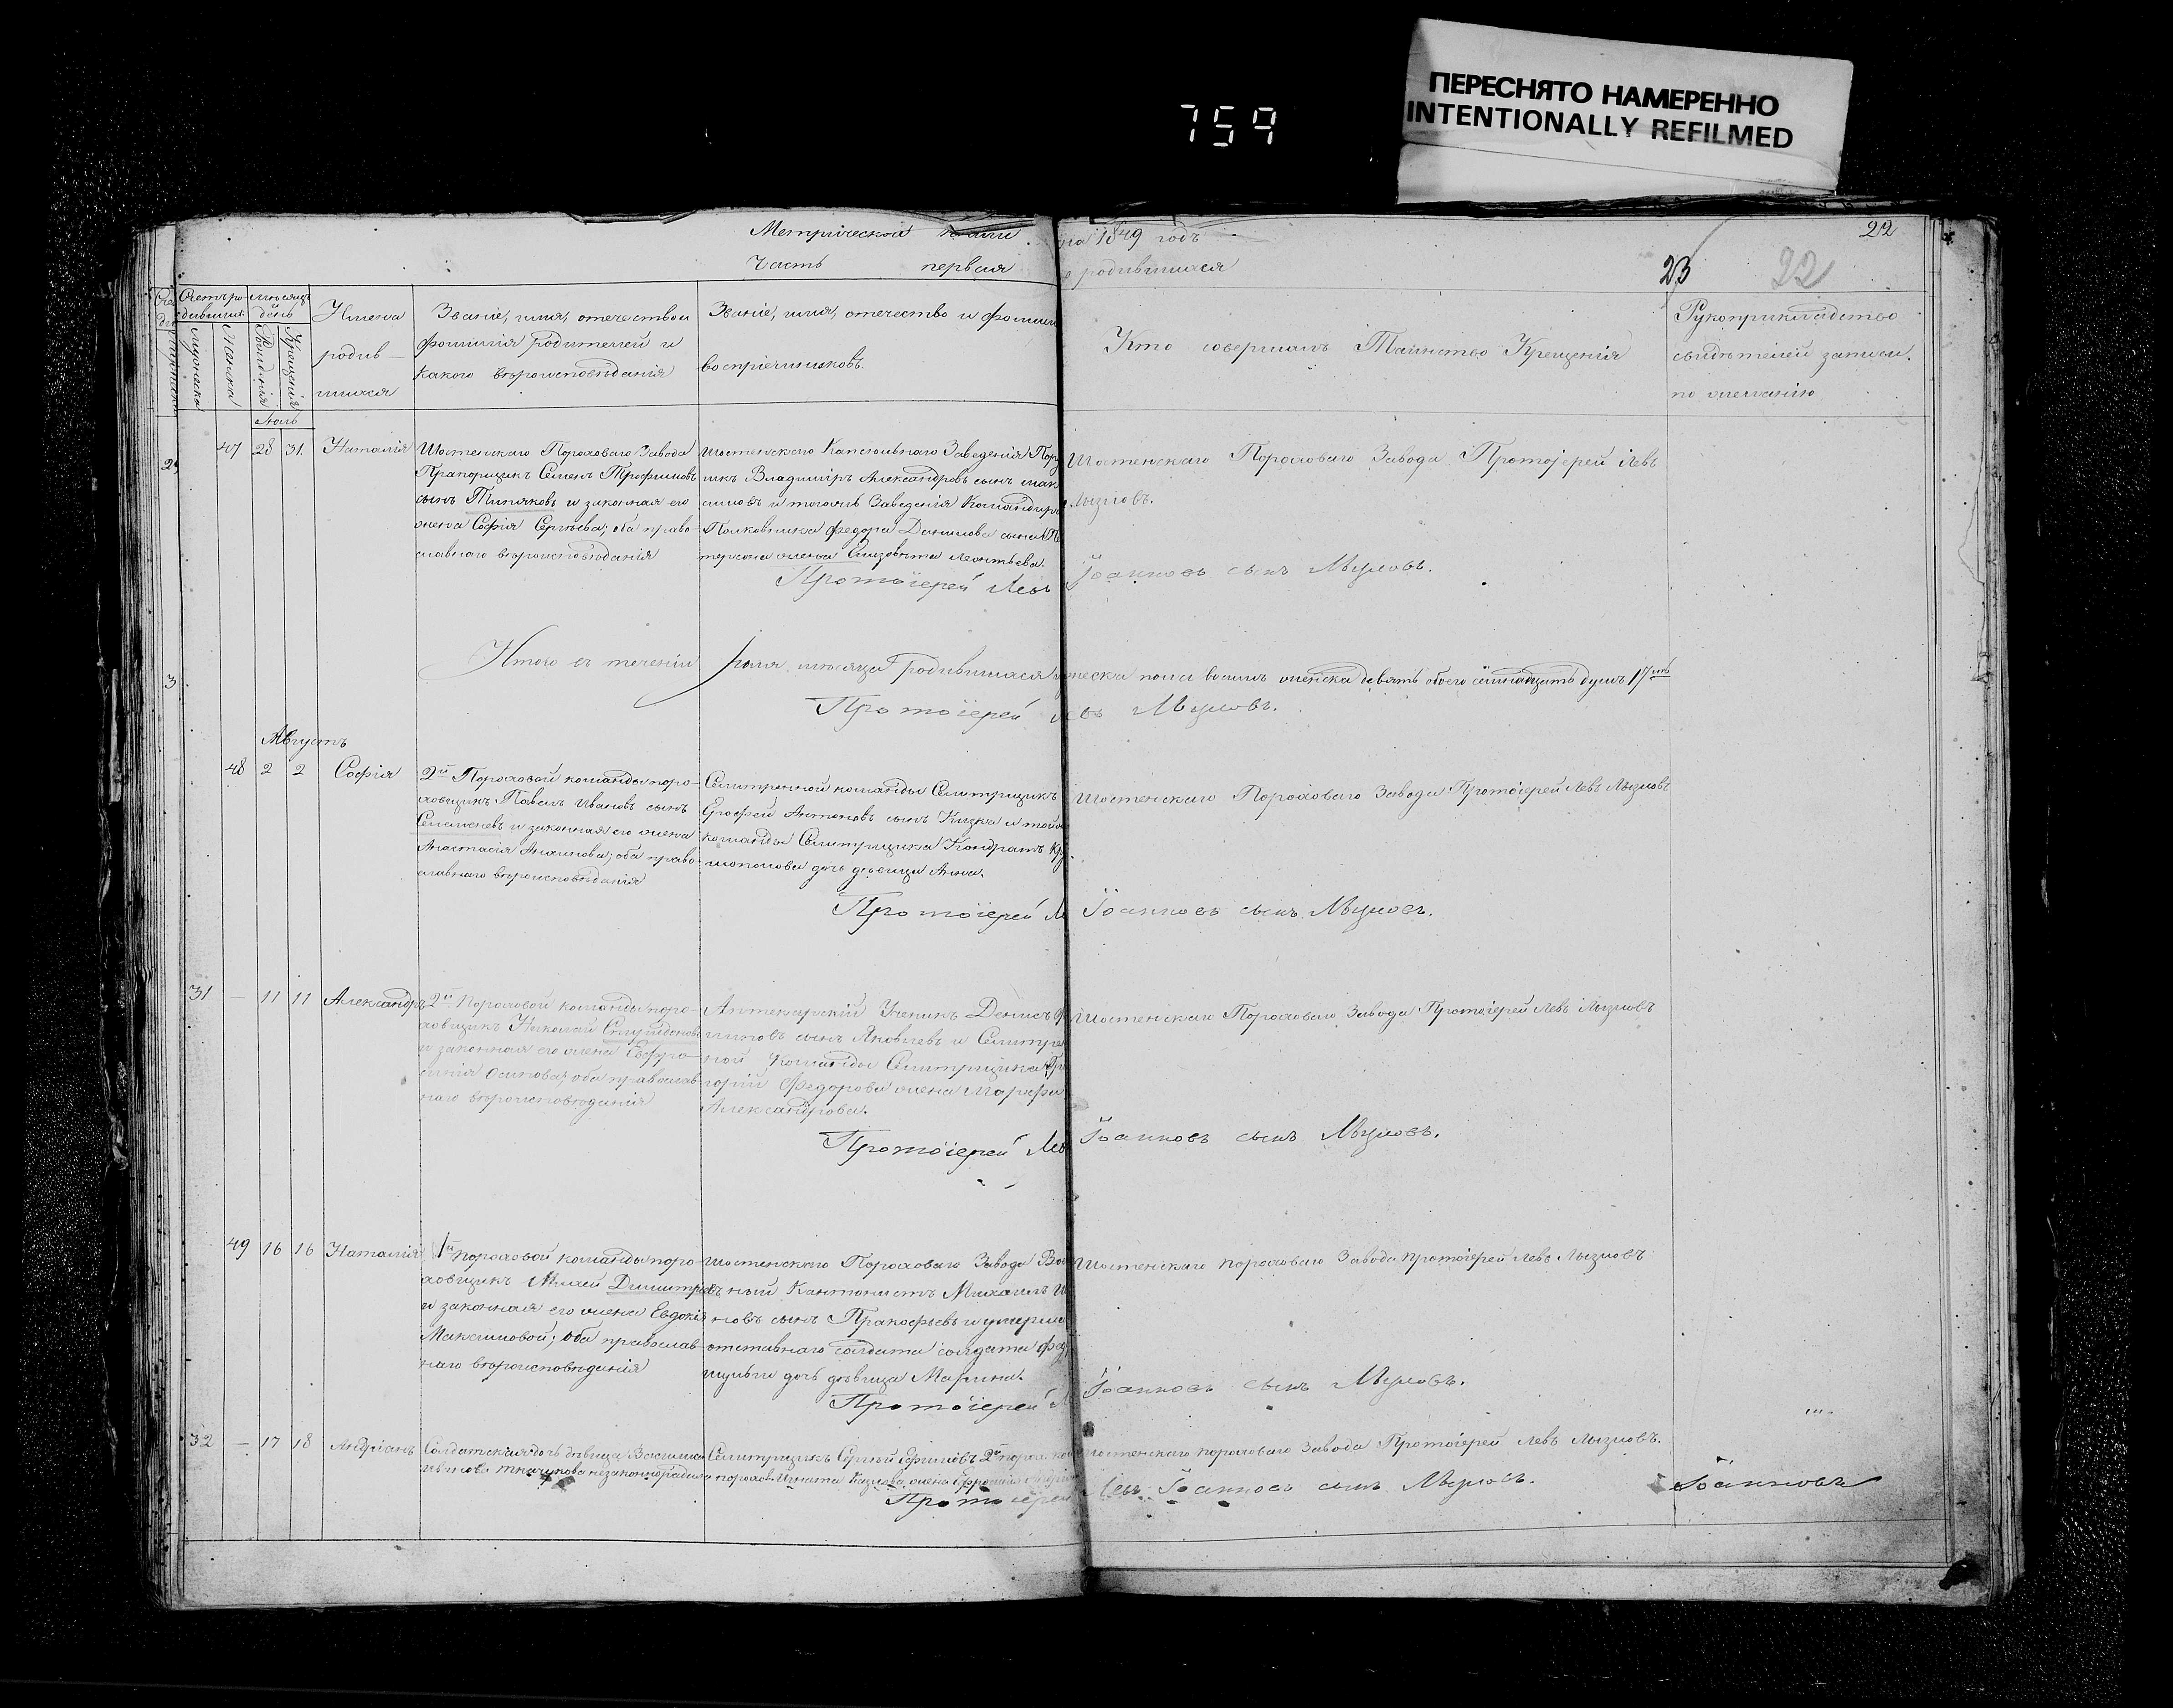 759
ПЕРЕСНЯТО НАМЕРЕННО
INTENTIONALLY REFILMED
Метрической книги на 1849 годъ
22
Часть первая о родившихся
23
22
Счетъ родившихся
Мужеска
Женска
Мѣсяцъ день
Рожденія
Крещенія
Имена
родив-
шихся
Званіе, имя, отечество и
фамилія родителей и
какого вѣроисповѣданія
Званіе, имя, отечество и фамилія
воспріемниковъ.
Кто совершалъ Таинство Крещенія
Рукоприкладство
свидѣтелей записи
по желанію
Іюль
47 28 31. Наталія
Шостенскаго Пороховаго Завода
Прапорщикъ Семенъ Трофимовъ
сынъ Типяковъ и законная его
жена Софія Сергѣева; оба право-
славнаго вѣроисповѣданія
Шостенскаго Капсюльнаго Заведенія Пору
чикъ Владиміръ Александровъ сынъ Мак
симовъ и тогожъ Заведенія Командира
Полковника Федора Данилова сына
жена Елизовета Леонтьева.
Шостенскаго Пороховаго Завода Протоіерей Левъ
Лызловъ.
Протоіерей Левъ Іоанновъ сынъ Лызловъ.
Итого въ теченіи Іюля мѣсяца родившихся мужеска пола восимь женска девять обоего семнадцать душъ 17
Протоіерей Левъ Лызловъ.
Августъ
48 2 2 Софія
2й Пороховой команды поро-
ховщикъ Павелъ Ивановъ сынъ
и законная его жена
Анастасія Акимова; оба право-
славнаго вѣроисповѣданія
Селитренной команды Селитрщикъ
Ерофей Антоновъ сынъ Кизка и той же
команды Селитрщика Кондратъ
дочь девица Анна.
Шостенскаго Пороховаго Завода Протоіерей Левъ Лызловъ
Протоіерей Левъ Іоанновъ сынъ Лызловъ.
31 — 11 11 Александръ
2й Пороховой команды поро-
ховщикъ Николай
и законная его жена Евфро-
синія Осипова; оба православ-
наго вѣроисповѣданія
Аптекарскій Ученикъ Денисъ
сынъ Яковлевъ и Селитрен
ной Команды Селитрщика Гри
горій Федорова жена Марфа
Александрова.
Шостенскаго Пороховаго Завода Протоіерей Левъ Лызловъ
Протоіерей Левъ Іоанновъ сынъ Лызловъ.
49 16 16 Наталія
1й пороховой команды поро-
ховщикъ Михей Димитріевъ
и законная его жена Евдокія
Максимовой; оба православ-
наго вѣроисповѣданія
Шостенскаго Пороховаго Завода Вое
ный Кантонистъ Михаилъ
новъ сынъ Пракофьевъ и умерша
отставнаго солдата солдата
дочь девица Марина.
Шостенскаго пороховаго Завода протоіерей Левъ Лызловъ
Протоіерей Левъ Іоанновъ сынъ Лызловъ.
32 — 17 18 Андріанъ
Солдатская дочь девица Василиса
незаконнорадила
Селитрщикъ Сергѣй Ефимовъ 2й порох. ко
порохов. Игната жена
Шостенскаго пороховаго Завода Протоіерей Левъ Лызловъ.
Протоіерей Левъ Іоанновъ сынъ Лызловъ.
Іоанновъ